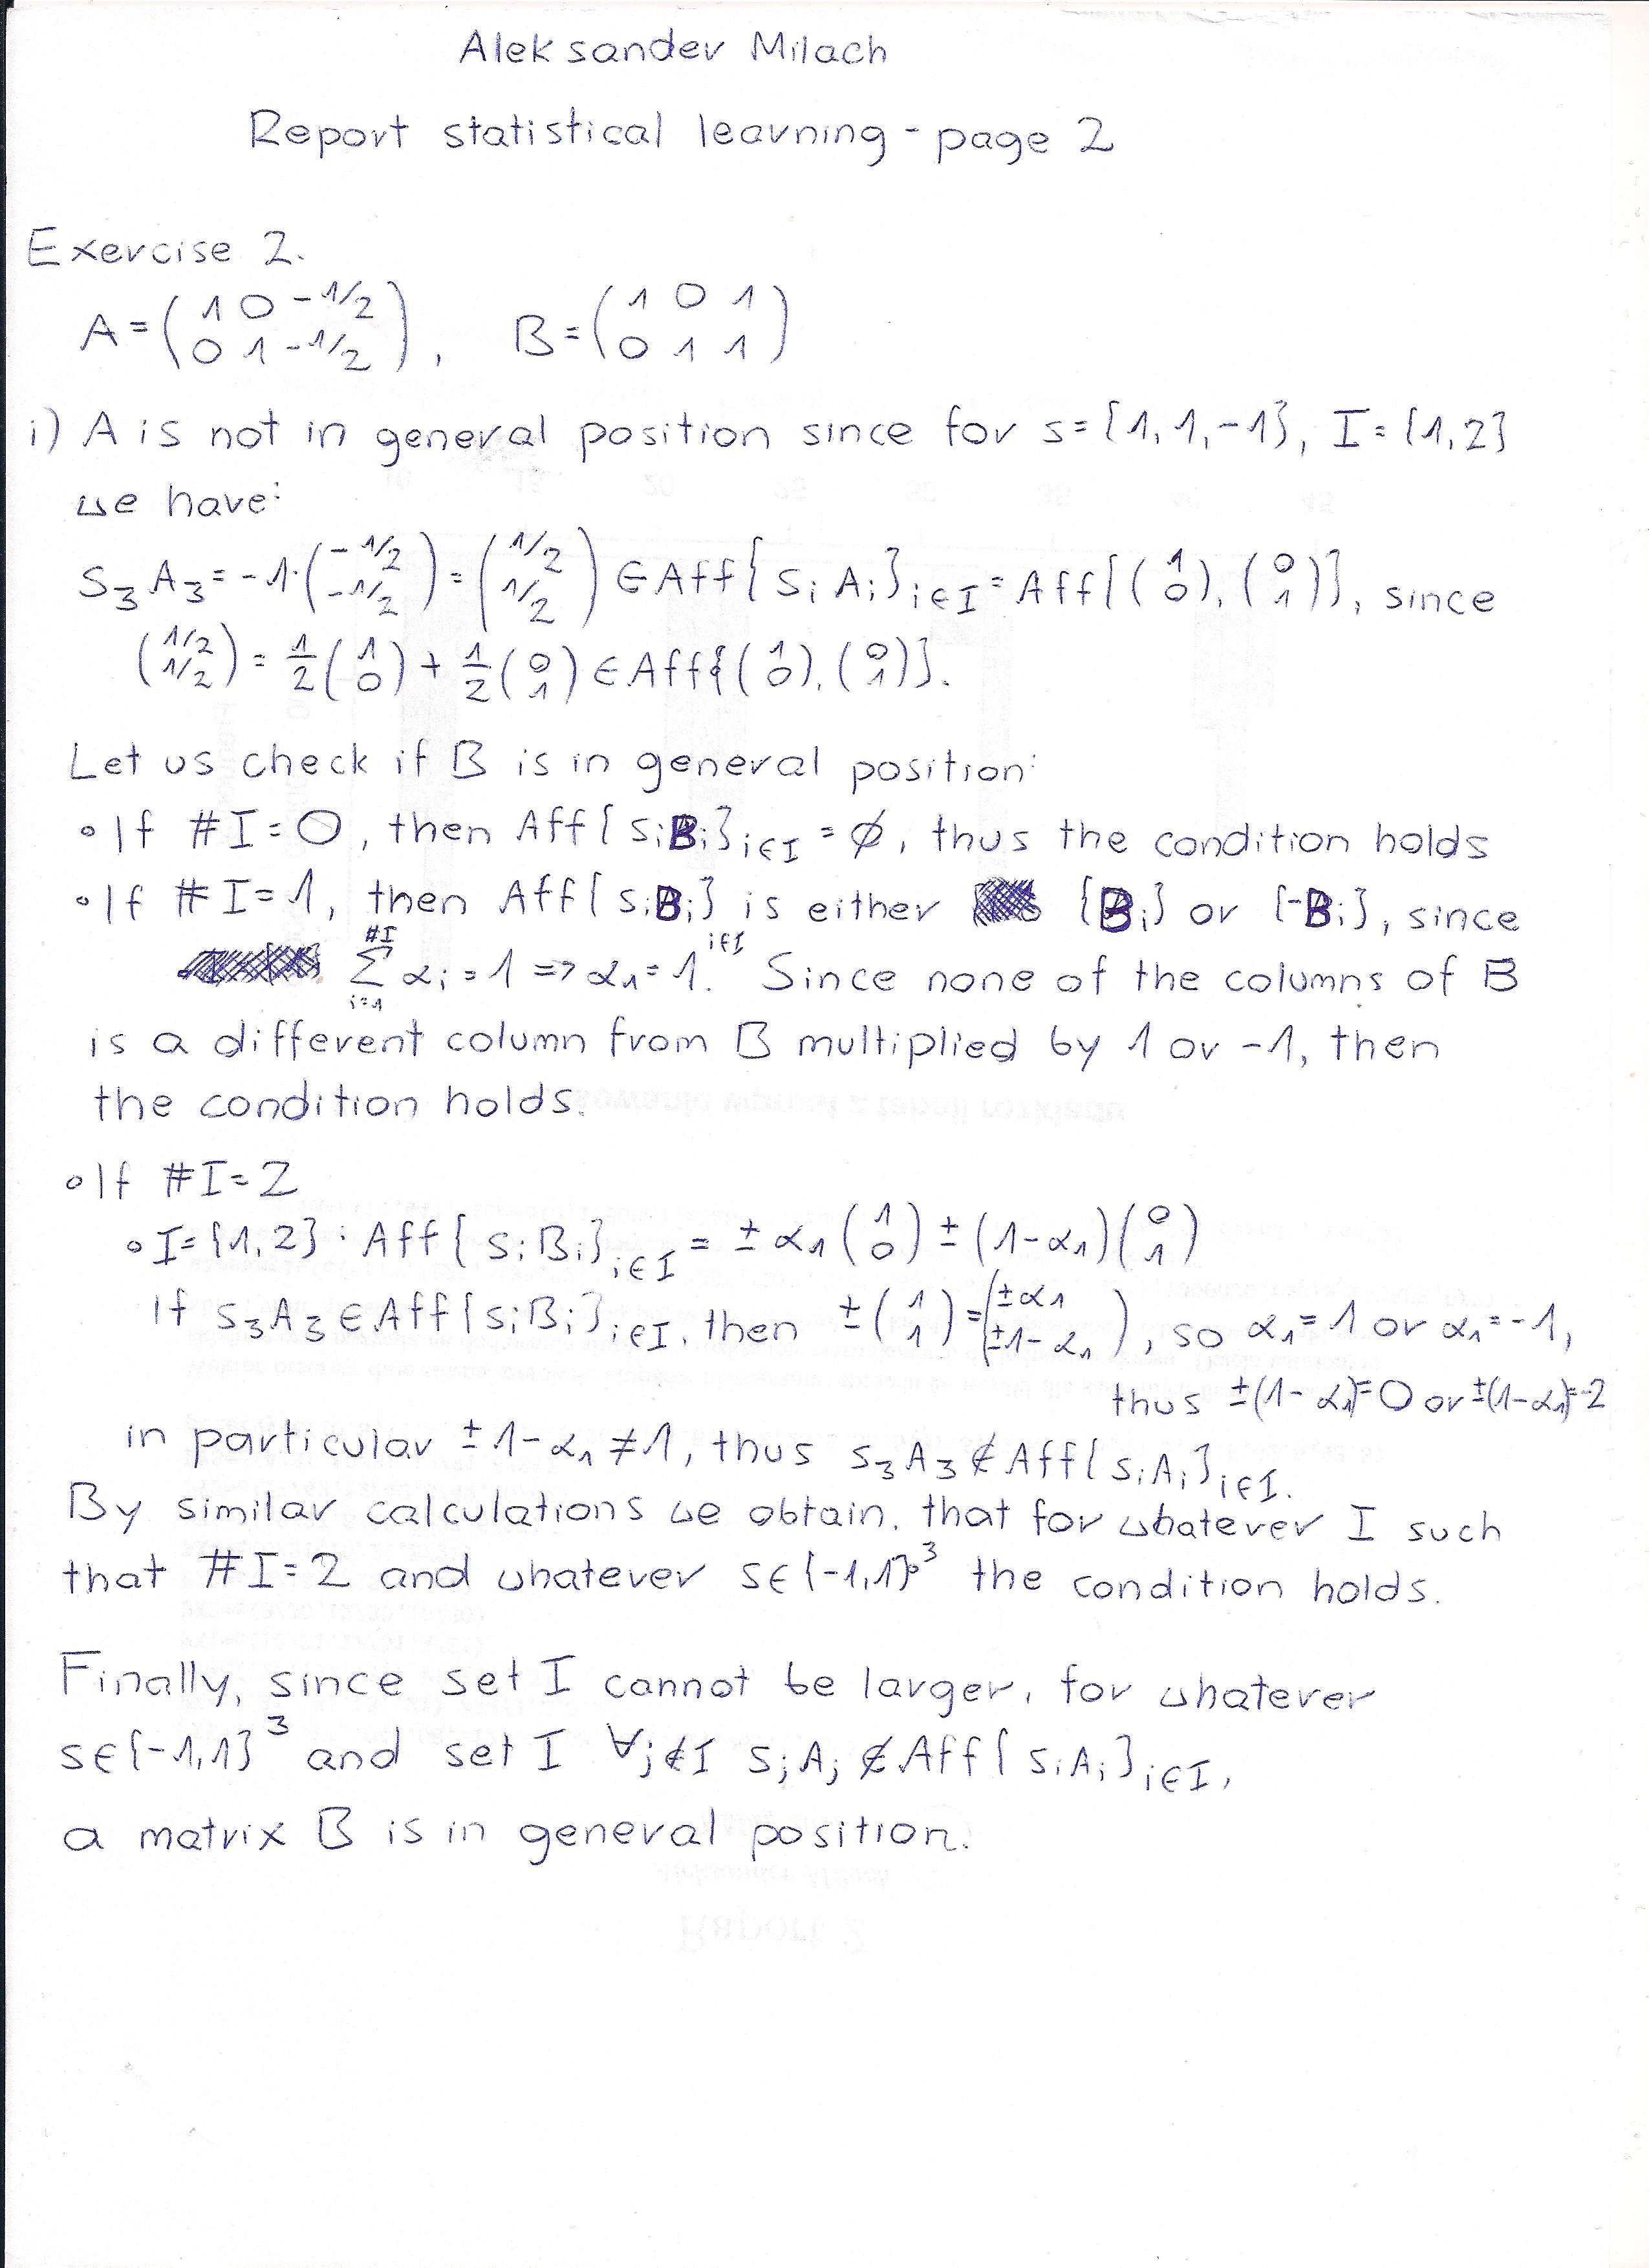 Aleksander Milach
Report statistical learning - page 2
Exercise 2.
A = (1 0 -1/2
0 1 -1/2), B = (1 0 1
0 1 1)
i) A is not in general position since for s={1,1,-1}, I={1,2}
we have:
S₃A₃ = -1·(-1/2 -1/2) = (1/2 1/2) ∈ Aff{sᵢAᵢ}ᵢ∈I = Aff{(1 0), (0 1)}, since
(1/2 1/2) = 1/2(1 0) + 1/2(0 1) ∈ Aff{(1 0), (0 1)}.
Let us check if B is in general position:
• If #I=0, then Aff{sᵢBᵢ}ᵢ∈I = ∅, thus the condition holds
• If #I=1, then Aff{sᵢBᵢ}ᵢ∈I is either {Bᵢ} or {-Bᵢ}, since
#I Σ i=1 αᵢ = 1 => α₁ = 1. Since none of the columns of B
is a different column from B multiplied by 1 or -1, then
the condition holds.
• If #I=2
• I={1,2}: Aff{sᵢBᵢ}ᵢ∈I = ±α₁(1 0) ± (1-α₁)(0 1)
If s₃A₃ ∈ Aff{sᵢBᵢ}ᵢ∈I, then ±(1 1) = (±α₁ ±1-α₁), so α₁=1 or α₁=-1,
thus ±(1-α₁)=0 or ±(1-α₁)=-2
in particular ±1-α₁ ≠ 1, thus s₃A₃ ∉ Aff{sᵢAᵢ}ᵢ∈I.
By similar calculations we obtain, that for whatever I such
that #I=2 and whatever s∈{-1,1}³ the condition holds.
Finally, since set I cannot be larger, for whatever
s∈{-1,1}³ and set I ∀j∉I sⱼAⱼ ∉ Aff{sᵢAᵢ}ᵢ∈I,
a matrix B is in general position.